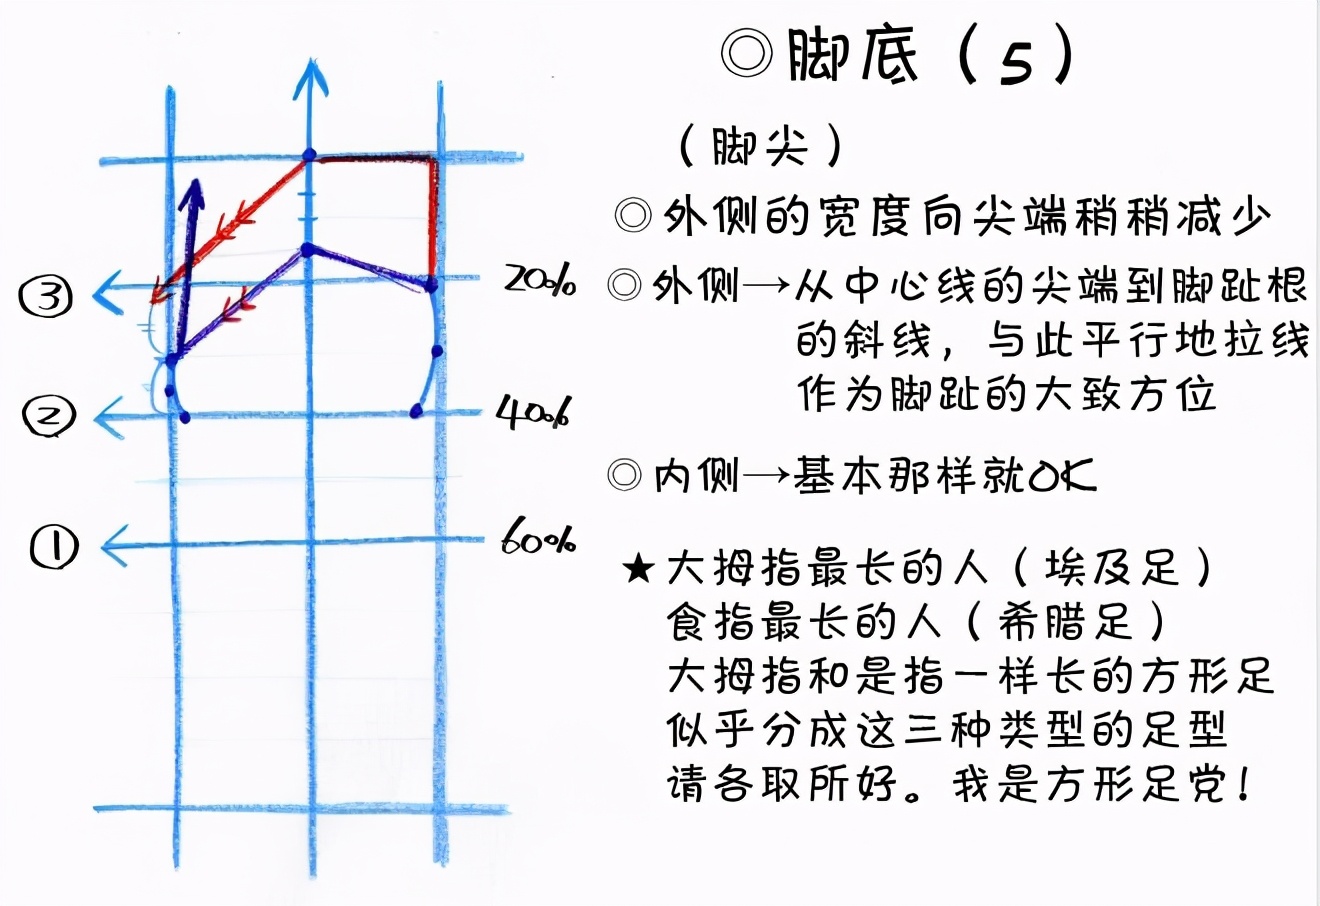 ◎脚底（5）
（脚尖）
◎外侧的宽度向尖端稍稍减少
◎外侧→从中心线的尖端到脚趾根
的斜线，与此平行地拉线
作为脚趾的大致方位
◎内侧→基本那样就OK
★大拇指最长的人（埃及足）
食指最长的人（希腊足）
大拇指和是指一样长的方形足
似乎分成这三种类型的足型
请各取所好。我是方形足党！
③
20%
②
40%
①
60%